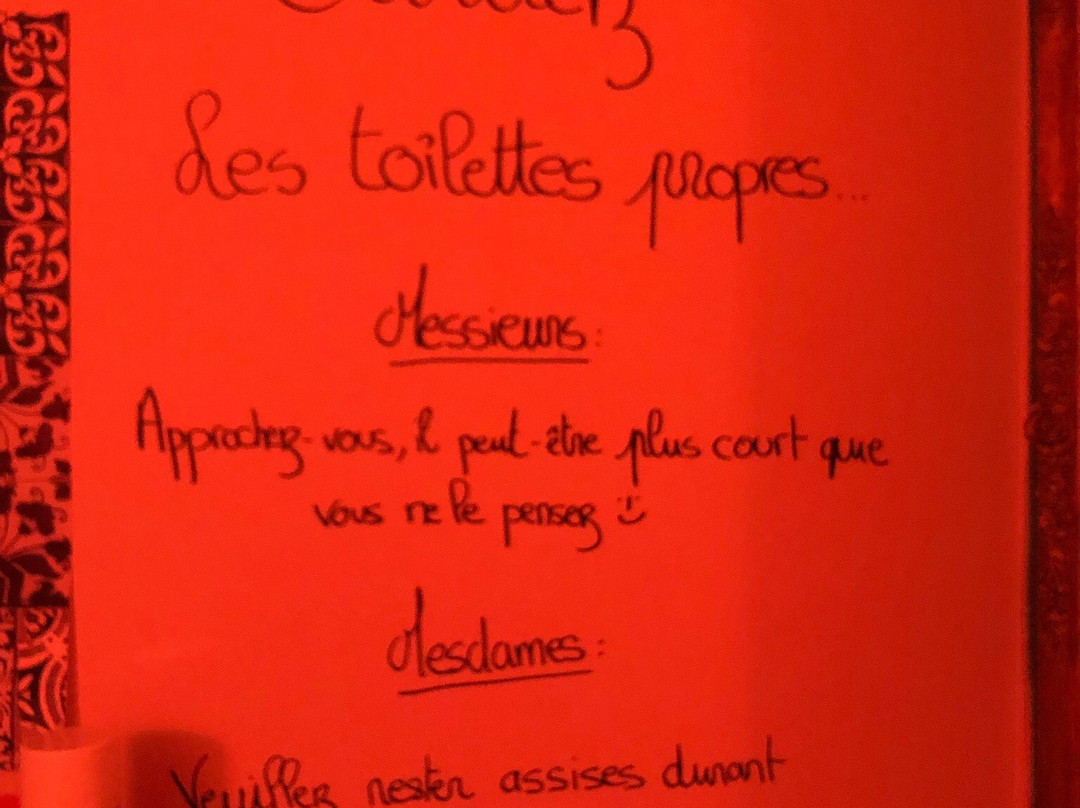 Les toilettes propres...
Messieurs:
Approchez-vous, il peut-être plus court que
vous ne le pensez :)
Mesdames:
Veuillez rester assises durant